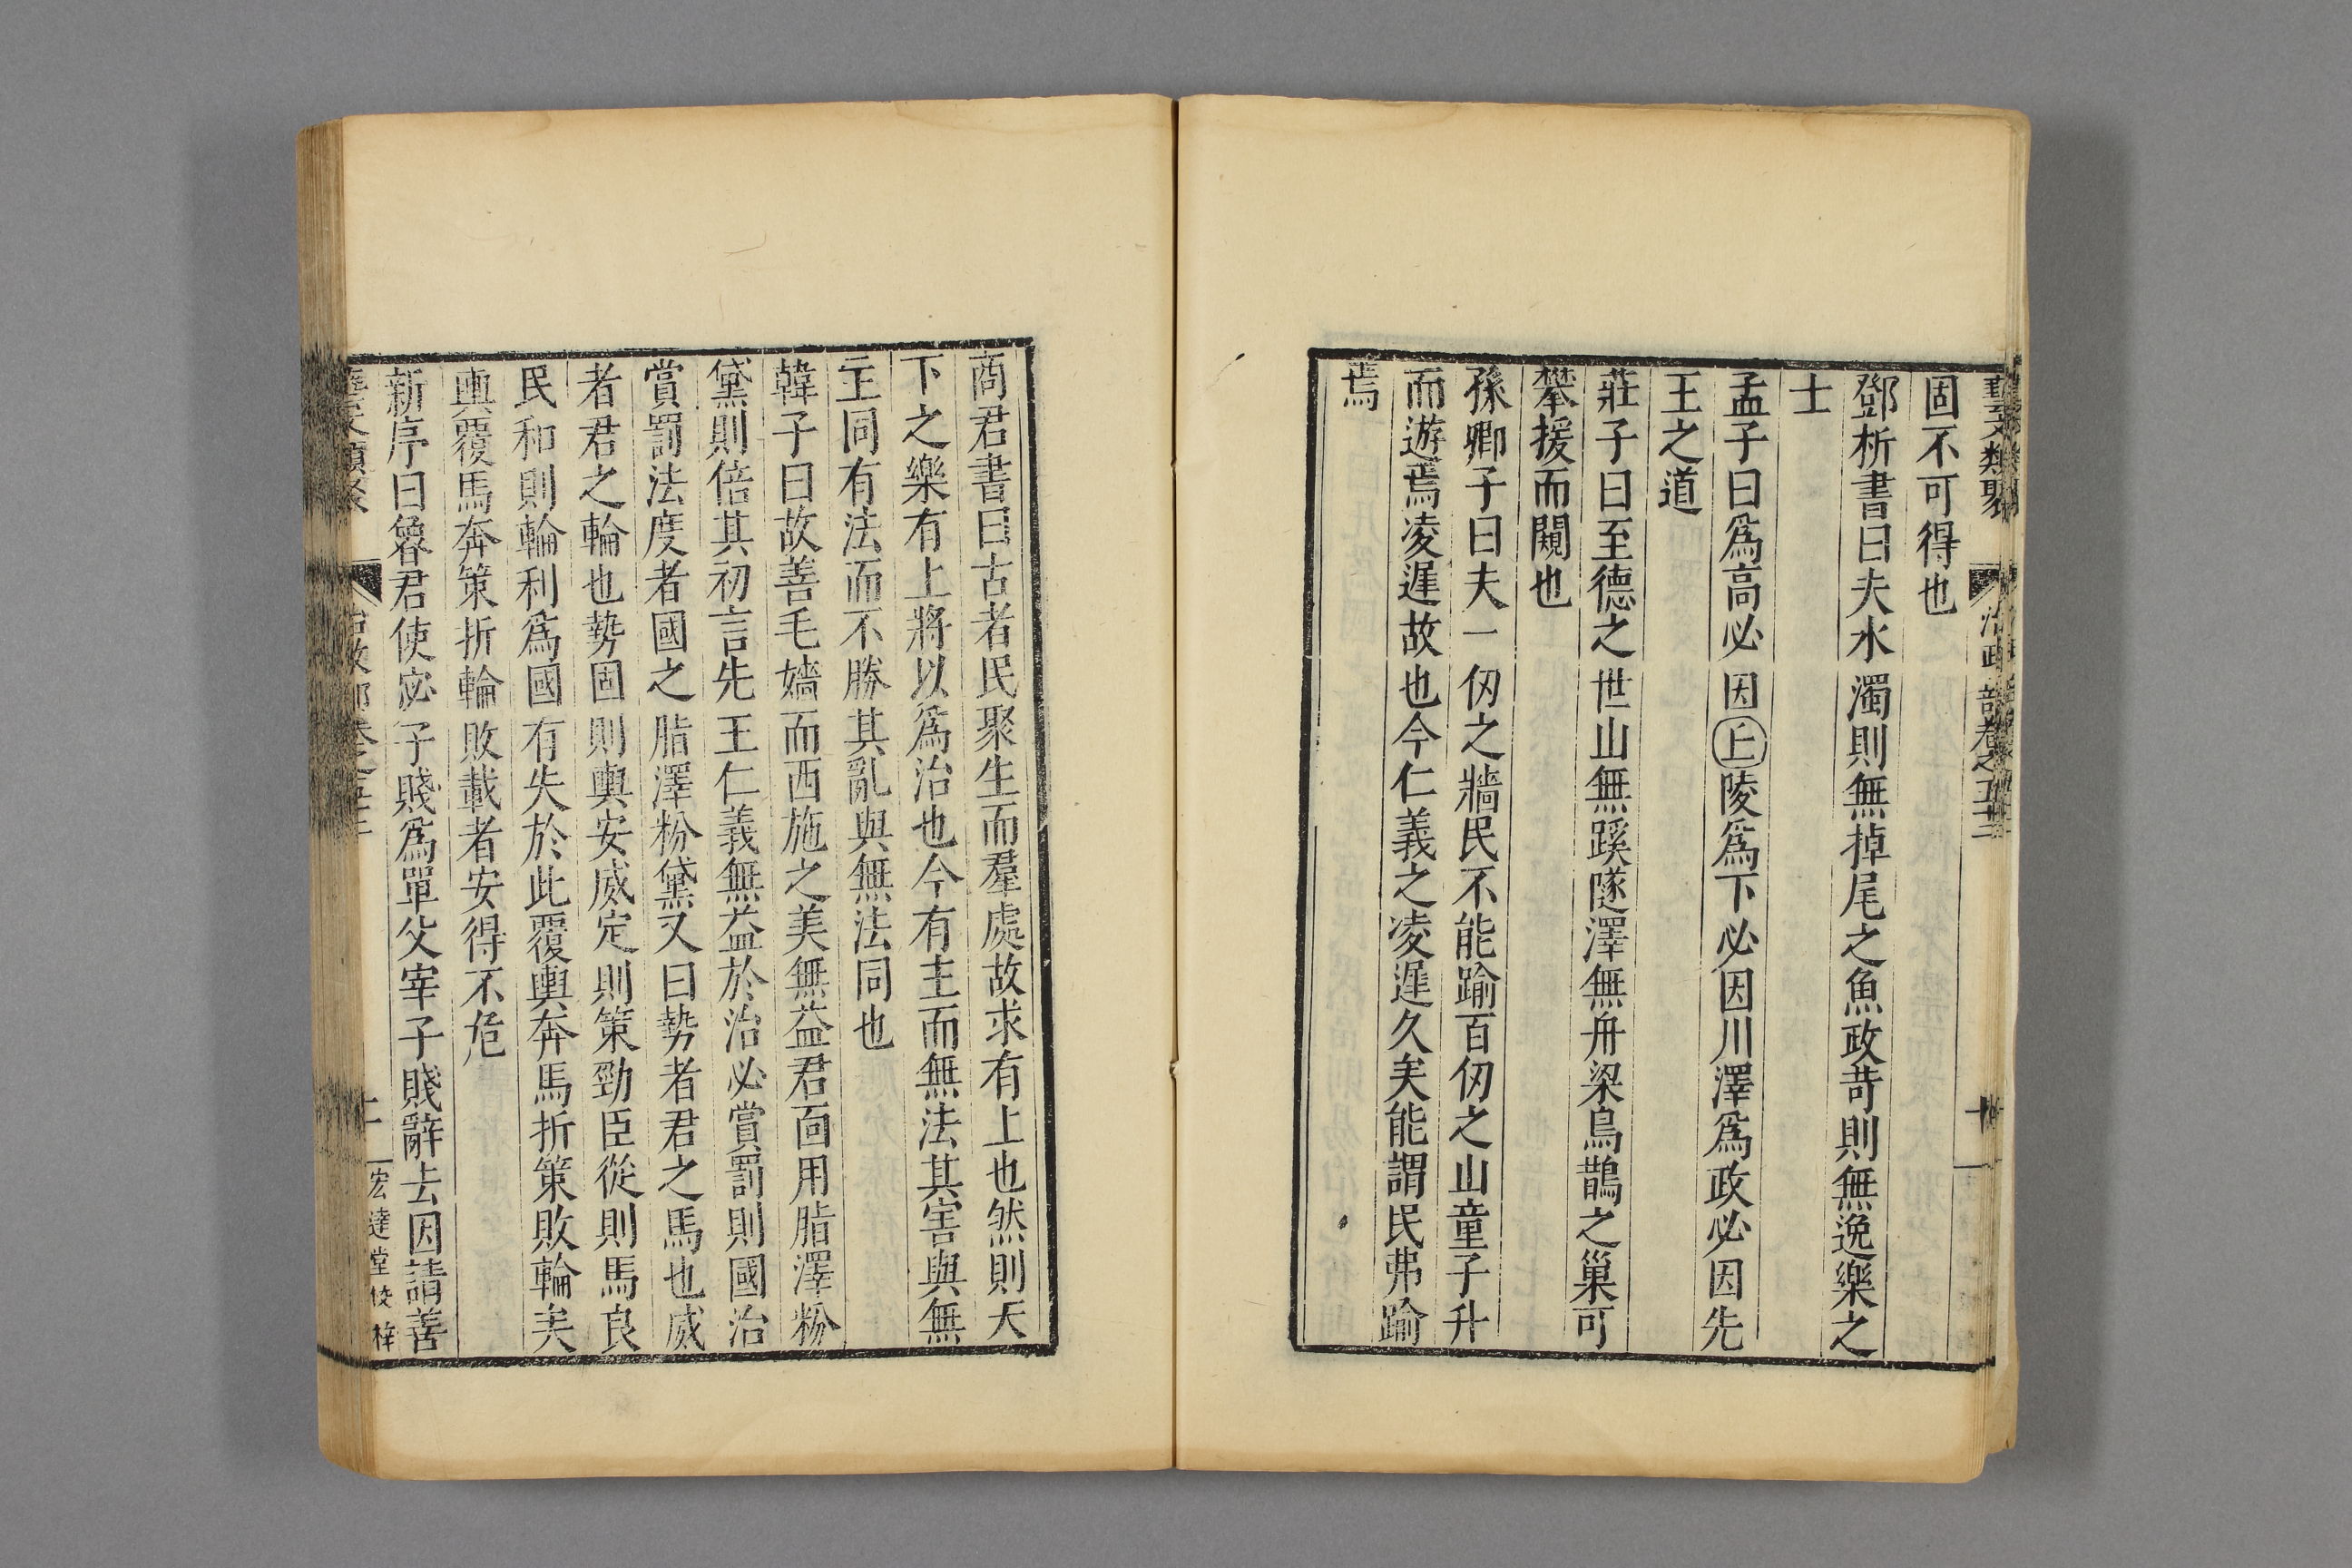 藝文類聚 治政部卷之五十二 十
固不可得也
鄧析書曰夫水濁則無掉尾之魚政苛則無逸樂之
士
孟子曰爲高必因上陵爲下必因川澤爲政必因先
王之道
莊子曰至德之世山無蹊隧澤無舟梁鳥鵲之巢可
攀援而闚也
孫卿子曰夫一仞之牆民不能踰百仞之山童子升
而遊焉凌遲故也今仁義之凌遲久矣能謂民弗踰
焉
商君書曰古者民聚生而羣處故求有上也然則天
下之樂有上將以爲治也今有主而無法其害與無
主同有法而不勝其亂與無法同也
韓子曰故善毛嬙而西施之美無益君面用脂澤粉
黛則倍其初言先王仁義無益於治必賞罰則國治
賞罰法度者國之脂澤粉黛又曰勢者君之馬也威
者君之輪也勢固則輿安威定則策勁臣從則馬良
民和則輪利爲國有失於此覆輿奔馬折策敗輪矣
輿覆馬奔策折輪敗載者安得不危
新序曰魯君使宓子賤爲單父宰子賤辭去因請善
宏達堂校梓